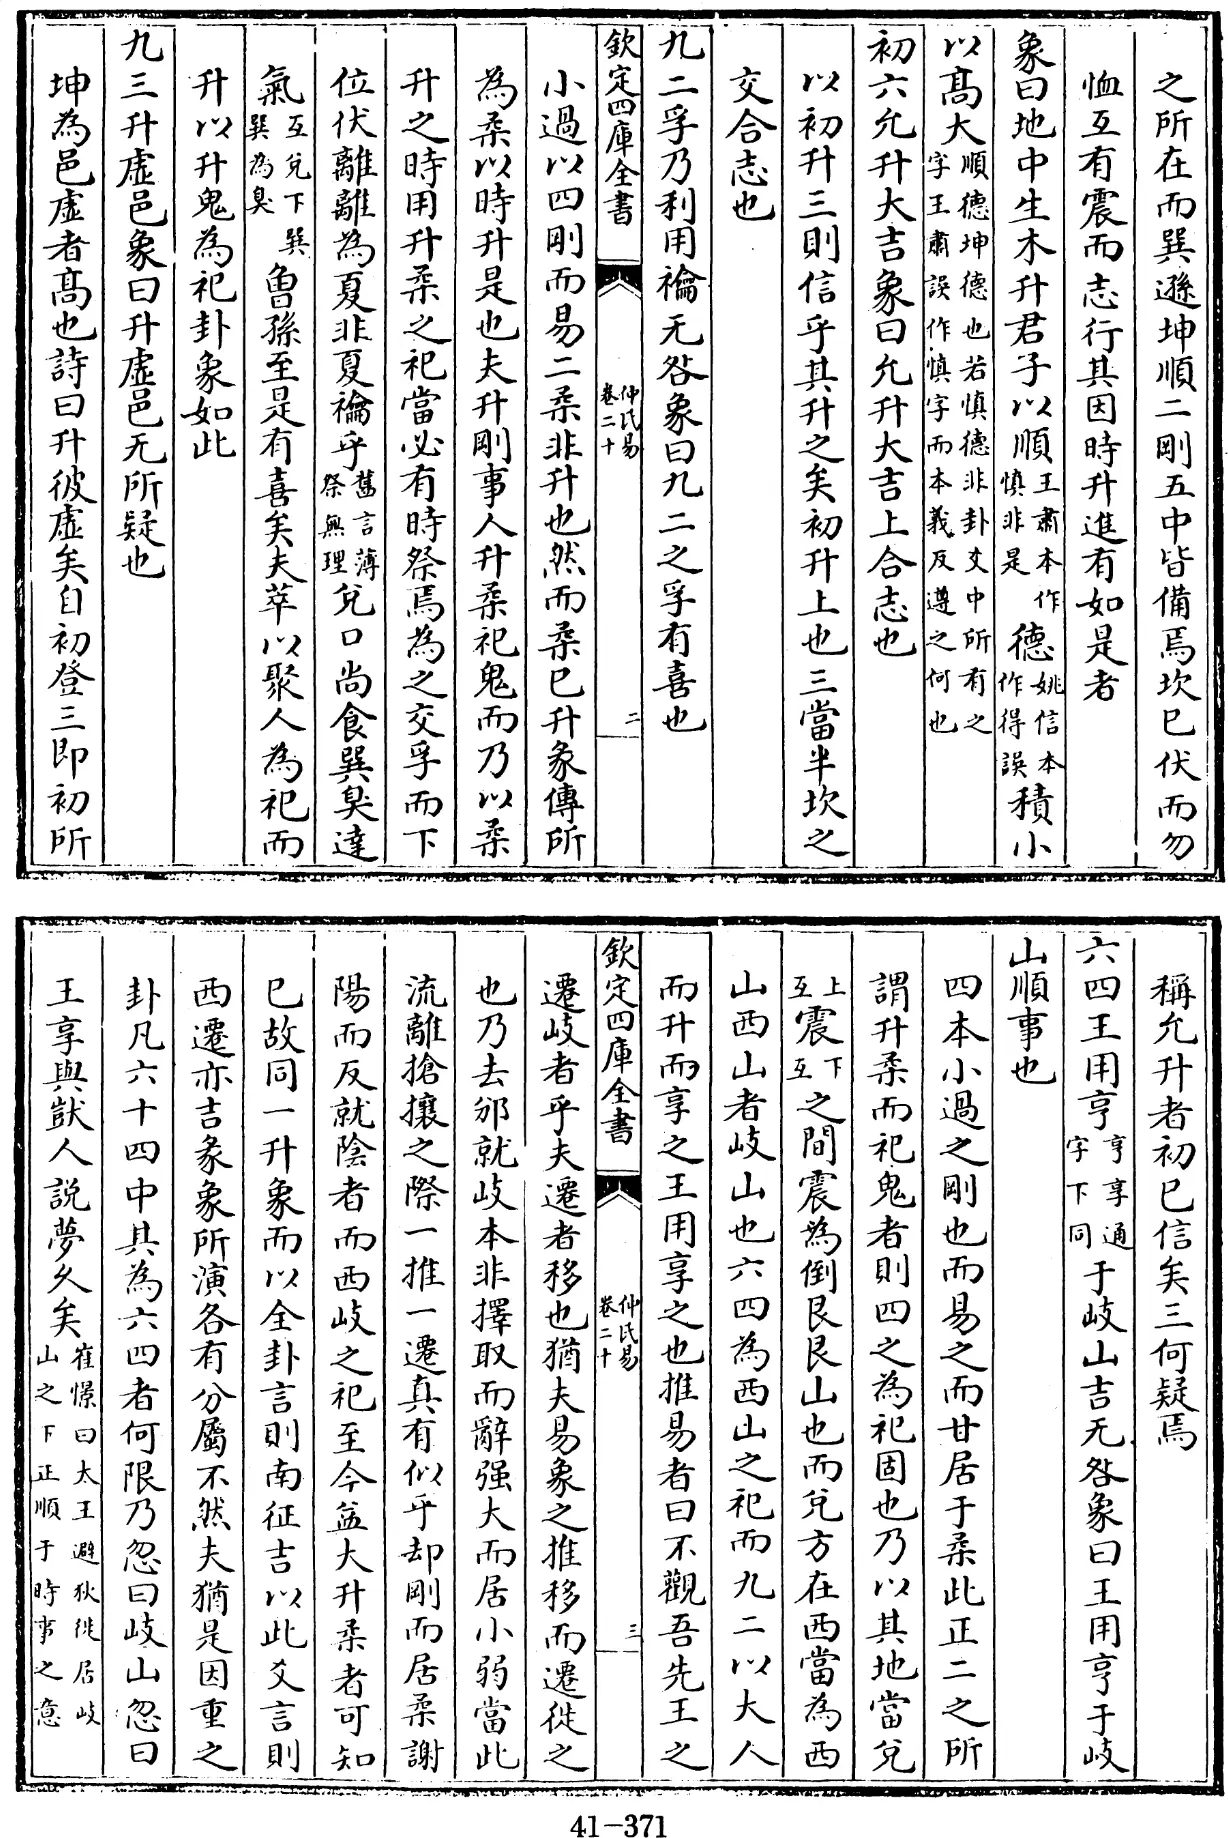 之所在而巽遜坤順二剛五中皆備焉坎已伏而勿
恤互有震而志行其因時升進有如是者
象曰地中生木升君子以順王肅本作慎非是德姚信本作得誤積小
以髙大順德坤德也若慎德非卦爻中所有之字王肅誤作慎字而本義反遵之何也
初六允升大吉象曰允升大吉上合志也
以初升三則信乎其升之矣初升上也三當半坎之
交合志也
九二孚乃利用禴无咎象曰九二之孚有喜也
欽定四庫全書
仲氏易
卷二十
二
小過以四剛而易二柔非升也然而柔已升象傳所
為柔以時升是也夫升剛事人升柔祀鬼而乃以柔
升之時用升柔之祀當必有時祭焉為之交孚而下
位伏離離為夏非夏禴乎舊言薄祭無理兌口尚食巽臭達
氣互兌下巽巽為臭魯孫至是有喜矣夫萃以聚人為祀而
升以升鬼為祀卦象如此
九三升虛邑象曰升虛邑无所疑也
坤為邑虛者髙也詩曰升彼虛矣自初登三即初所
稱允升者初已信矣三何疑焉
六四王用亨亨享通字下同于岐山吉无咎象曰王用亨于岐
山順事也
四本小過之剛也而易之而甘居于柔此正二之所
謂升柔而祀鬼者則四之為祀固也乃以其地當兌
上互震下互之間震為倒艮艮山也而兌方在西當為西
山西山者岐山也六四為西山之祀而九二以大人
而升而享之王用享之也推易者曰不觀吾先王之
欽定四庫全書
仲氏易
卷二十
三
遷岐者乎夫遷者移也猶夫易象之推移而遷徙之
也乃去邠就岐本非擇取而辭强大而居小弱當此
流離搶攘之際一推一遷真有似乎却剛而居柔謝
陽而反就陰者而西岐之祀至今益大升柔者可知
已故同一升象而以全卦言則南征吉以此爻言則
西遷亦吉彖象所演各有分屬不然夫猶是因重之
卦凡六十四中其為六四者何限乃忽曰岐山忽曰
王享與獃人說夢久矣崔憬曰太王避狄徙居岐山之下正順于時事之意
41-371